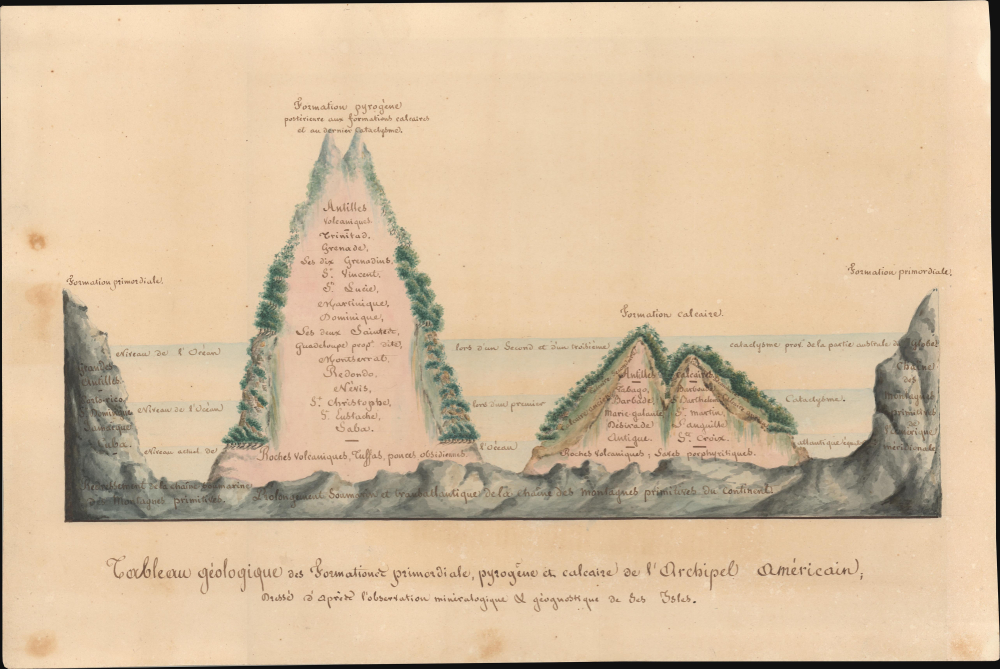 Formation pyrogène
postérieure aux formations calcaires
et au dernier Cataclysme.
Formation primordiale.
Formation primordiale.
Formation calcaire.
Antilles
Volcaniques
Trinitad,
Grenade,
Les dix Grenadins,
St. Vincent,
Ste. Lucie,
Martinique,
Dominique,
Les deux Saintes,
Guadeloupe propt. dite,
Montserrat,
Redondo,
Névis,
St. Christophe,
St. Eustache,
Saba.
Roches volcaniques, Tuffas, ponces obsidiennes
Niveau de l'Océan
lors d'un Second et d'un troisième
cataclysme prov. de la partie australe du Globe.
Niveau de l'Océan
lors d'un premier
Cataclysme.
Niveau actuel de
l'Océan
atlantique équat.
Grandes
Antilles
Porto-rico
St. Domingue
Jamaïque
Cuba.
Redressement de la chaîne Soumarine
des Montagnes primitives.
Antilles
Tabago,
Barbade
Marie-galante
Desirade
Antigue.
calcaires.
Barboude
Barthelemi
St. Martin,
L'anguille
Ste. Croix.
Roches Volcaniques; Laves porphyritiques.
Chaîne
des
Montagnes
primitives
de
l'Amérique
méridionale.
Prolongement Soumarin et transatlantique de la chaîne des montagnes primitives du Continent
Tableau géologique des Formations primordiale, pyrogène et calcaire de l'Archipel Américain,
Dressé d'Après l'observation minéralogique & géognostique de Ses Isles.